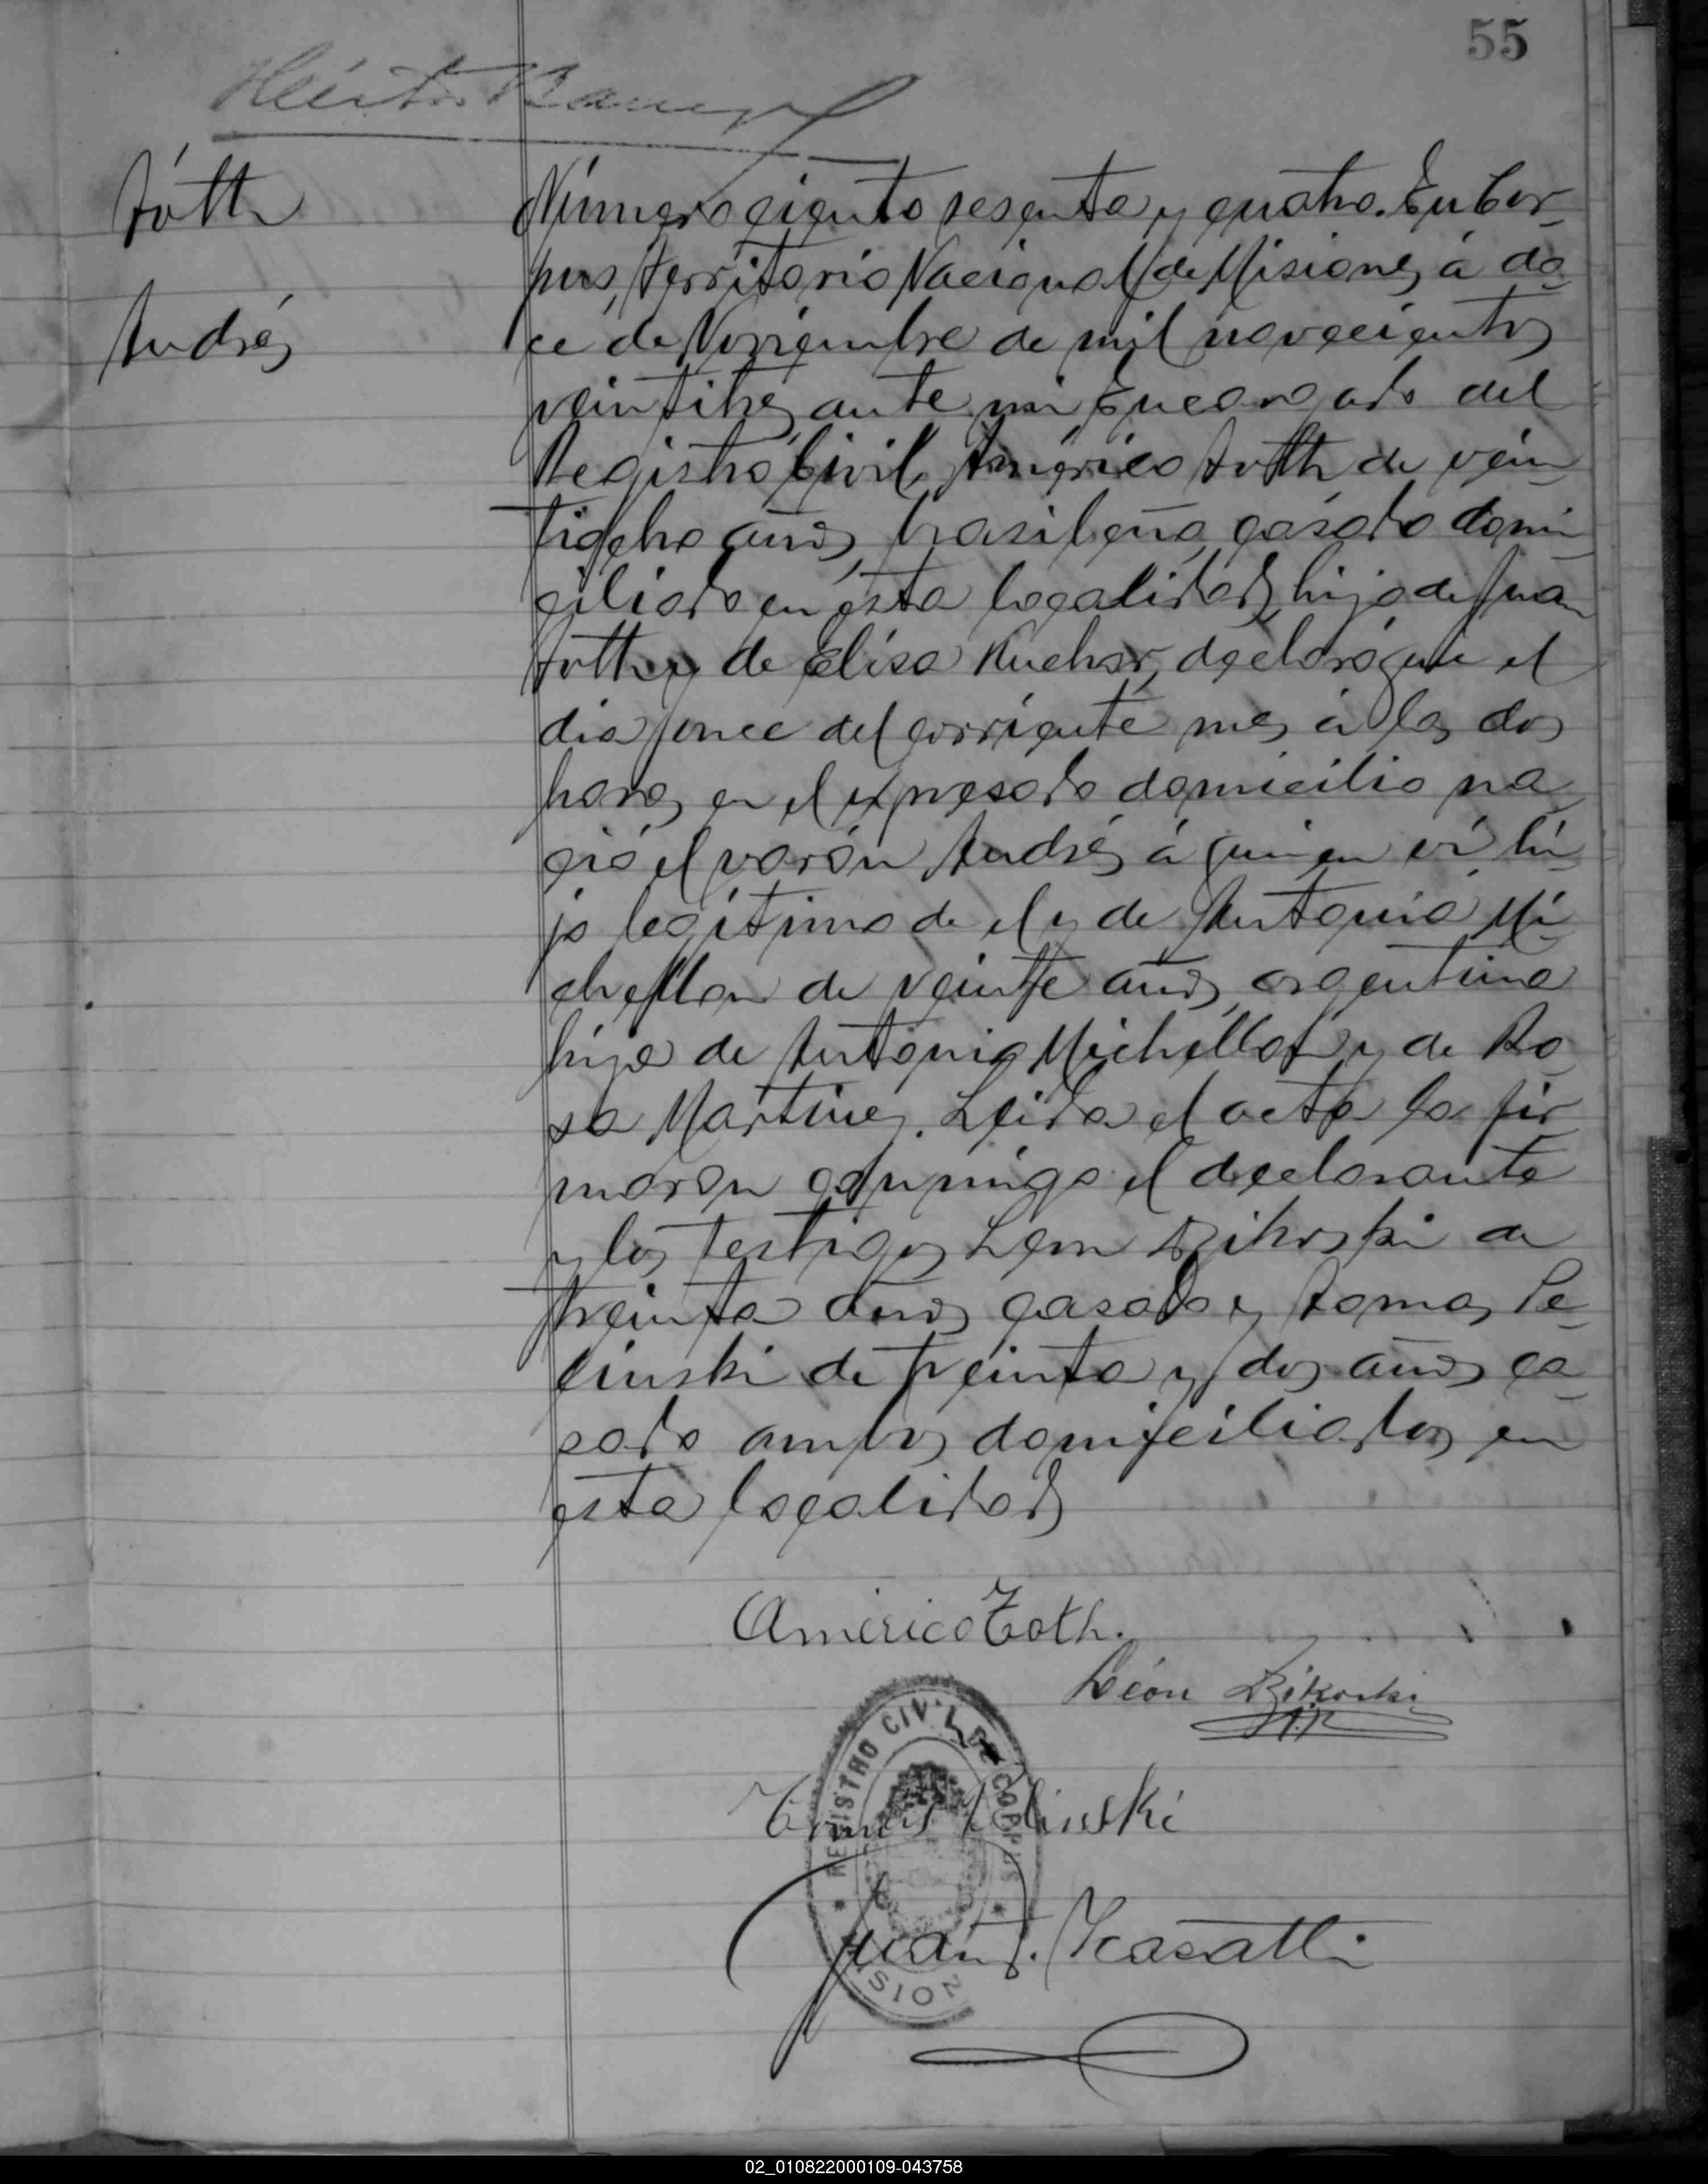 55
Tóth
Andrés
Número ciento sesenta y cuatro. En Cor-
pus, Territorio Nacional de Misiones, á do-
ce de Noviembre de mil novecientos
veintitres, ante mi Encargado del
Registro Civil, Américo Toth de vein-
tiocho años, brasileño, casado domi-
ciliado en ésta localidad, hijo de Juan
Toth y de Elisa Kuchar, declaró que el
dia once del corriente mes á las dos
horas en el expresado domicilio na-
ció el varón Andrés á quien vi hi-
jo legítimo de el y de Antonia Mi-
chellon de veinte años, argentina
hija de Antonio Michellon y de Ro-
sa Martinez. Leida el acta la fir-
maron conmigo el declarante
y los testigos León Dzikoski de
treinta años casado y Tomas Ze-
linski de treinta y dos años ca-
sado ambos domiciliados en
esta localidad
Américo Toth.
León Dzikoski
Tomas Zelinski
REGISTRO CIVIL DE CORPUS
Juan J.
MISIONES
02_010822000109-043758